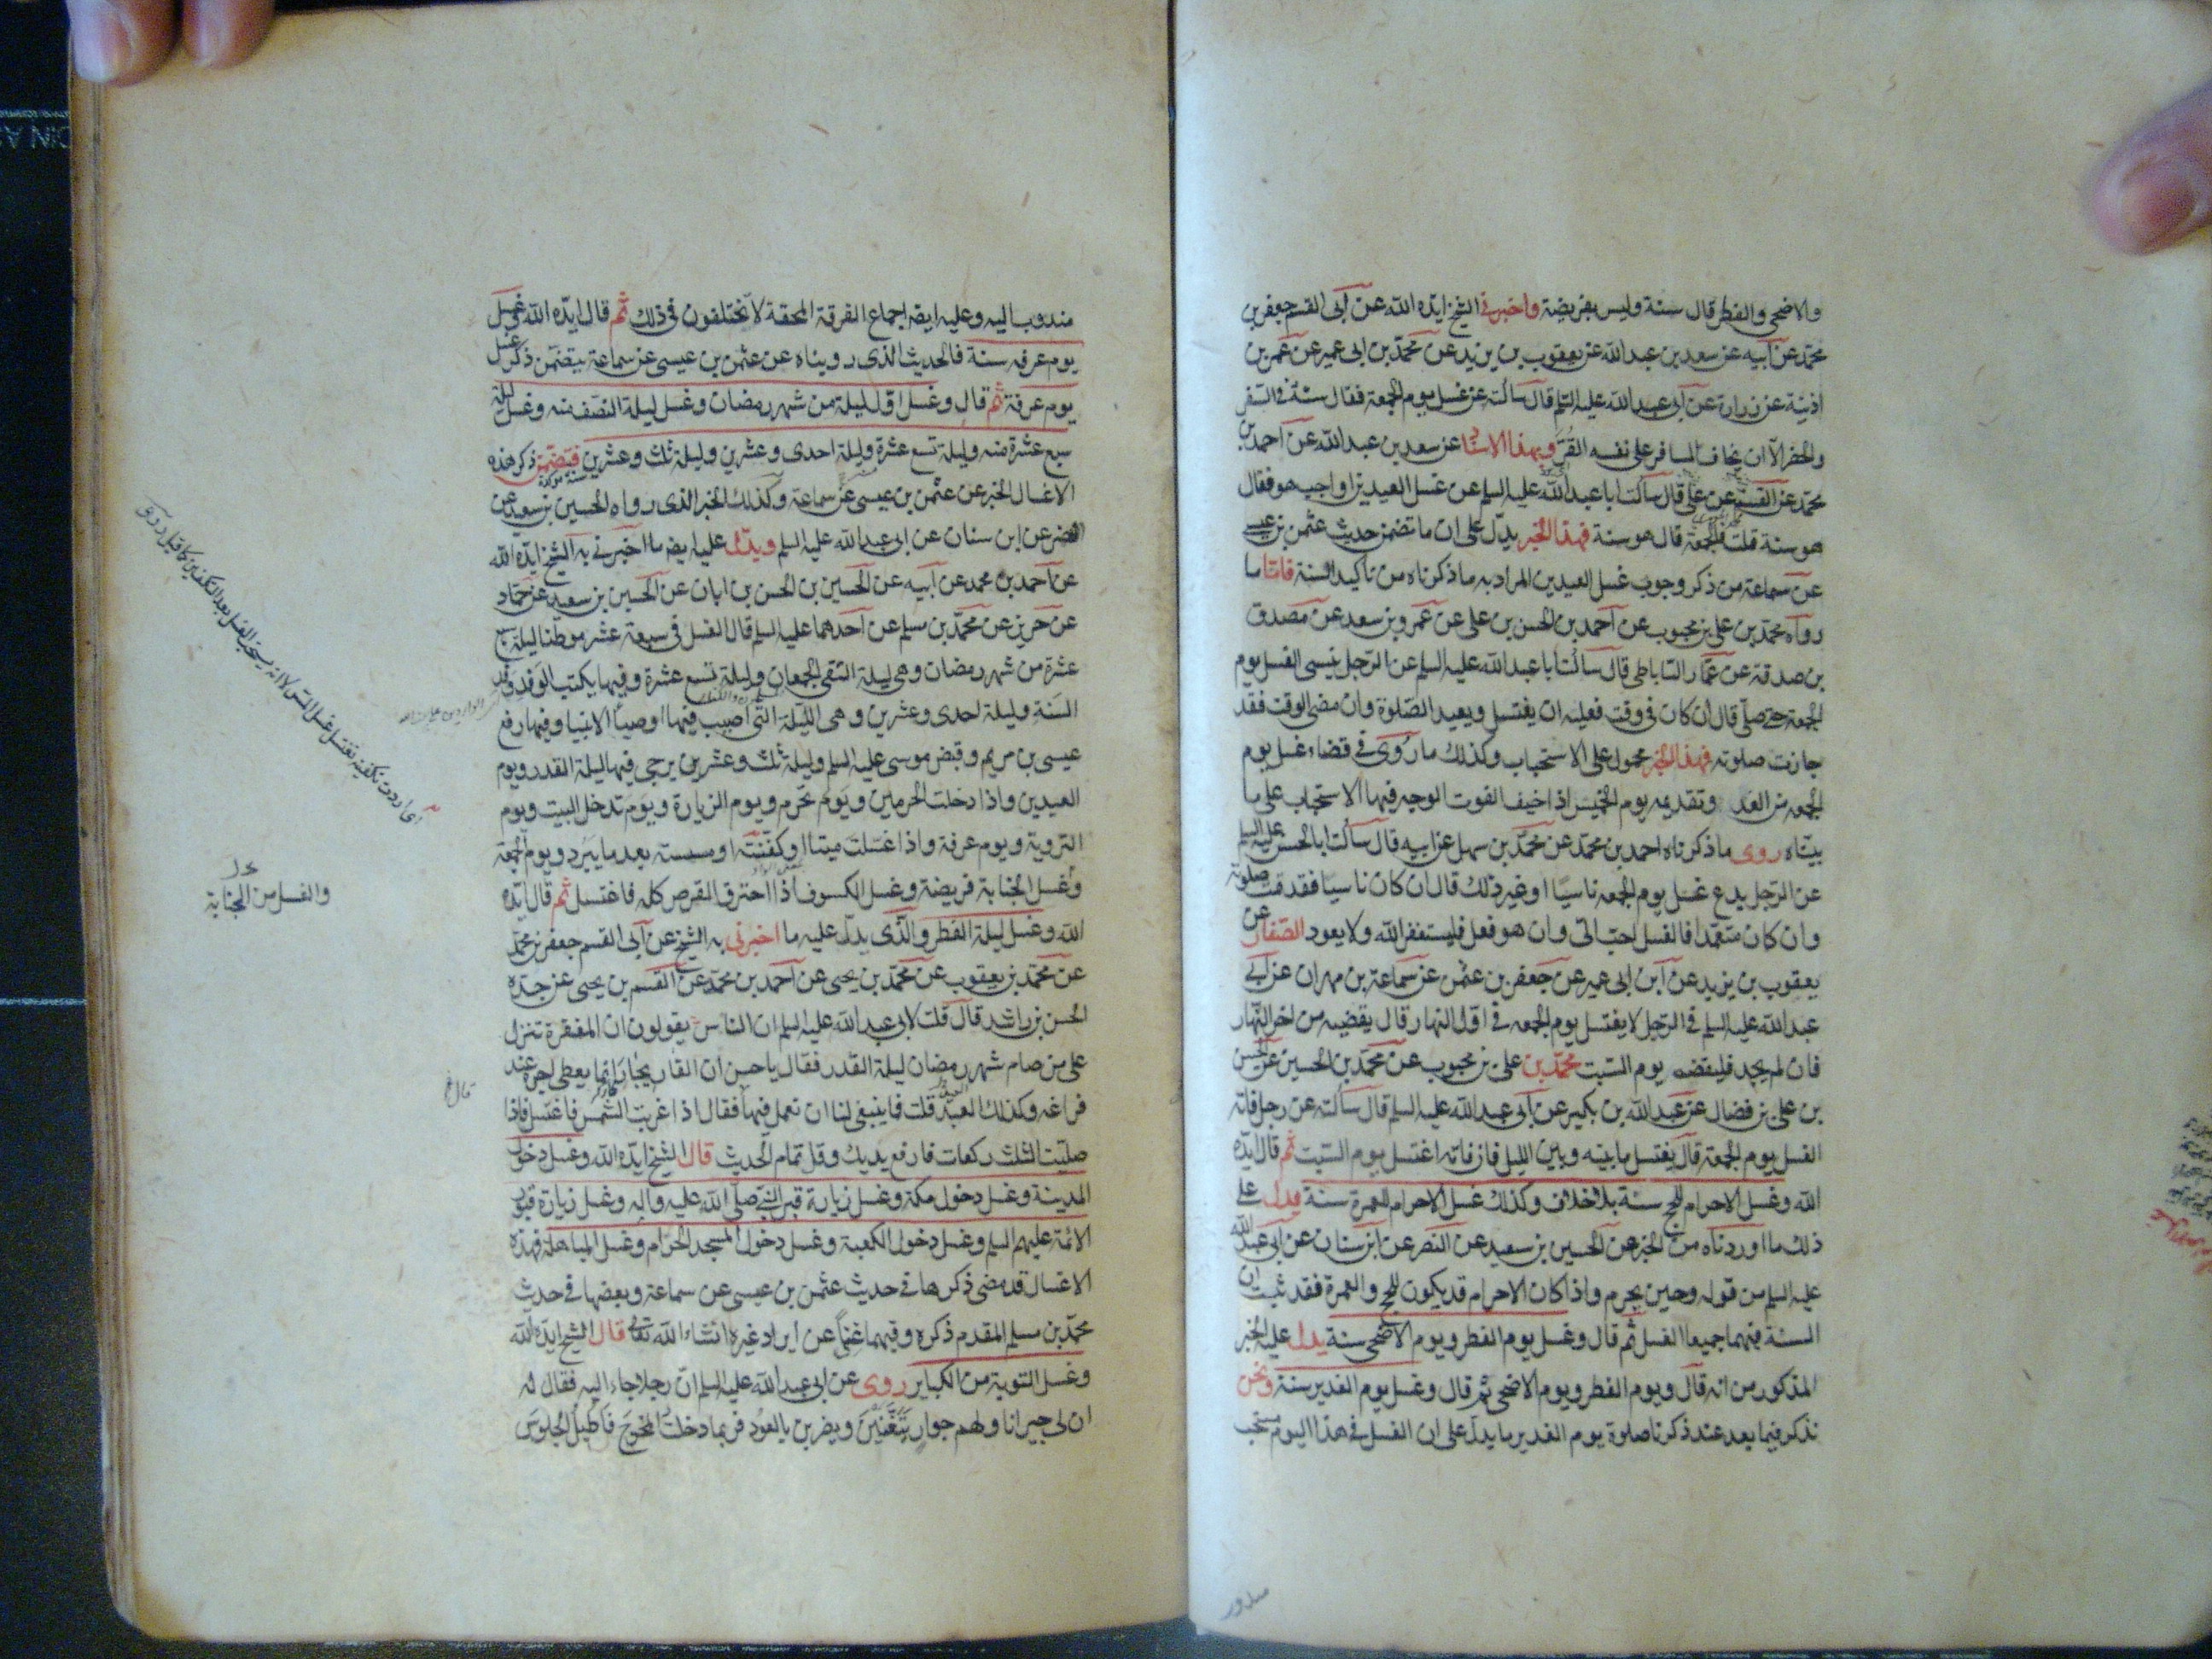 والاضحى والفطر قال سنة وليس بفريضة واخبرنى الشيخ ايده الله عن ابى القسم جعفر بن
محمد عن ابيه عن سعد بن عبد الله عن يعقوب بن يزيد عن محمد بن ابى عمير عن عمر بن
اذينة عن زرارة عن ابى عبد الله عليه السلم قال سألته عن غسل يوم الجمعة فقال سنة فى السفر
والحضر الا ان يخاف المسافر على نفسه القر وبهذا الاسناد عن سعد بن عبد الله عن احمد بن
محمد عن القسم عن على قال سألت ابا عبد الله عليه السلم عن غسل العيدين اواجب هو فقال
هو سنة قلت فالجمعة قال هو سنة فهذا الخبر يدل على ان ما تضمن حديث عثمن بن عيسى
عن سماعة من ذكر وجوب غسل العيدين المراد به ما ذكرناه من تاكيد السنة فاما ما
رواه محمد بن على بن محبوب عن احمد بن الحسن بن على عن عمرو بن سعد عن مصدق
بن صدقة عن عمار الساباطى قال سألت ابا عبد الله عليه السلم عن الرجل ينسى الغسل يوم
الجمعة حتى صلى قال ان كان فى وقت فعليه ان يغتسل ويعيد الصلوة وان مضى الوقت فقد
جازت صلوته فهذا الخبر محمول على الاستحباب وكذلك ما روى فى قضاء غسل يوم
الجمعة من الغد وتقديمه يوم الخميس اذا خيف الفوت الوجه فيها الاستحباب على ما
بيناه روى ما ذكرناه احمد بن محمد عن محمد بن سهل عن ابيه قال سألت ابا الحسن عليه السلم
عن الرجل يدع غسل يوم الجمعه ناسيا او غير ذلك قال ان كان ناسيا فقد تمت صلوته
وان كان متعمدا فالغسل احب الى وان هو فعل فليستغفر الله ولا يعود الصفار عن
يعقوب بن يزيد عن ابن ابى عمير عن جعفر بن عثمن عن سماعة بن مهران عن ابى
عبد الله عليه السلم فى الرجل لا يغتسل يوم الجمعه فى اول النهار قال يقضيه من اخر النهار
فان لم يجد فليقضه يوم السبت محمد بن على بن محبوب عن محمد بن الحسين عن الحسن
بن على بن فضال عن عبد الله بن بكير عن ابى عبد الله عليه السلم قال سألته عن رجل فاته
الغسل يوم الجمعة قال يغتسل ما بينه وبين الليل فان فاته اغتسل يوم السبت ثم قال ايده
الله وغسل الاحرام للحج سنة بلا خلاف وكذلك غسل الاحرام للعمرة سنة فيدل على
ذلك ما اوردناه من الخبر عن الحسين بن سعيد عن النضر عن ابن سنان عن ابى عبد الله
عليه السلم من قوله وحين يحرم واذا كان الاحرام قد يكون للحج والعمرة فقد ثبت ان
السنة فيهما جميعا الغسل ثم قال وغسل يوم الفطر ويوم الاضحى سنة يدل عليه الخبر
المذكور من انه قال ويوم الفطر ويوم الاضحى ثم قال وغسل يوم الغدير سنة ونحن
نذكر فيما بعد عند ذكرنا صلوة يوم الغدير ما يدل على ان الغسل فى هذا اليوم مستحب
مندوب اليه وعليه ايضه اجماع الفرقة المحقة لا يختلفون فى ذلك ثم قال ايده الله غسل
يوم عرفه سنة فالحديث الذى رويناه عن عثمن بن عيسى عن سماعة يتضمن ذكر غسل
يوم عرفة ثم قال وغسل اول ليلة من شهر رمضان وغسل ليلة النصف منه وغسل ليلة
سبع عشرة منه وليلة تسع عشرة وليلة احدى وعشرين وليلة ثلث وعشرين فيتضمن ذكر هذه
سنة موكدة
الاغسال الخبر عن عثمن بن عيسى عن سماعة وكذلك الخبر الذى رواه الحسين بن سعيد عن
النضر عن ابن سنان عن ابى عبد الله عليه السلم ويدل عليه ايضه ما اخبرنى به الشيخ ايده الله
عن احمد بن محمد عن ابيه عن الحسين بن الحسن بن ابان عن الحسين بن سعيد عن حماد
عن حريز عن محمد بن مسلم عن احدهما عليه السلم قال الغسل فى سبعة عشر موطنا ليلة سبع
عشرة من شهر رمضان وهى ليلة التقى الجمعان وليلة تسع عشرة وفيها يكتب الوفد وفد
السنة وليلة احدى وعشرين وهى الليلة التى اصيب فيها اوصيا الانبيا وفيها رفع
عيسى بن مريم وقبض موسى عليه السلم وليلة ثلث وعشرين يرجى فيها ليلة القدر ويوم
العيدين واذا دخلت الحرمين ويوم تحرم ويوم الزيارة ويوم تدخل البيت ويوم
التروية ويوم عرفة واذا غسلت ميتا او كفنته او مسسته بعد ما يبرد ويوم الجمعة
وغسل الجنابة فريضة وغسل الكسوف اذا احترق القرص كله فاغتسل ثم قال ايده
الله وغسل ليلة الفطر والذى يدل عليه ما اخبرنى به الشيخ عن ابى القسم جعفر بن محمد
عن محمد بن يعقوب عن محمد بن يحيى عن احمد بن محمد عن القسم بن يحيى عن جده
الحسن بن راشد قال قلت لابى عبد الله عليه السلم ان الناس يقولون ان المغفرة تنزل
على من صام شهر رمضان ليلة القدر فقال يا حسن ان القاريجار انما يعطى اجره عند
فراغه وكذلك العيد قلت فما ينبغى لنا ان نعمل فيها فقال اذا غربت الشمس فاغتسل فاذا
صليت الثلث ركعات فارفع يديك وقل تمام الحديث قال الشيخ ايده الله وغسل دخول
المدينة وغسل دخول مكة وغسل زيارة قبر النبى صلى الله عليه واله وغسل زيارة قبور
الائمة عليهم السلم وغسل دخول الكعبة وغسل دخول المسجد الحرام وغسل المباهلة فهذه
الاغسال قد مضى ذكرها فى حديث عثمن بن عيسى عن سماعة وبعضها فى حديث
محمد بن مسلم المقدم ذكره وفيهما غنى عن ايراد غيره انشاء الله تعالى قال الشيخ ايده الله
وغسل التوبة من الكباير روى عن ابى عبد الله عليه السلم ان رجلا جاء اليه فقال له
ان لى جيرانا ولهم جوار يتغنين ويضربن بالعود فربما دخلت المخرج فاطيل الجلوس
والغسل من الجنابة